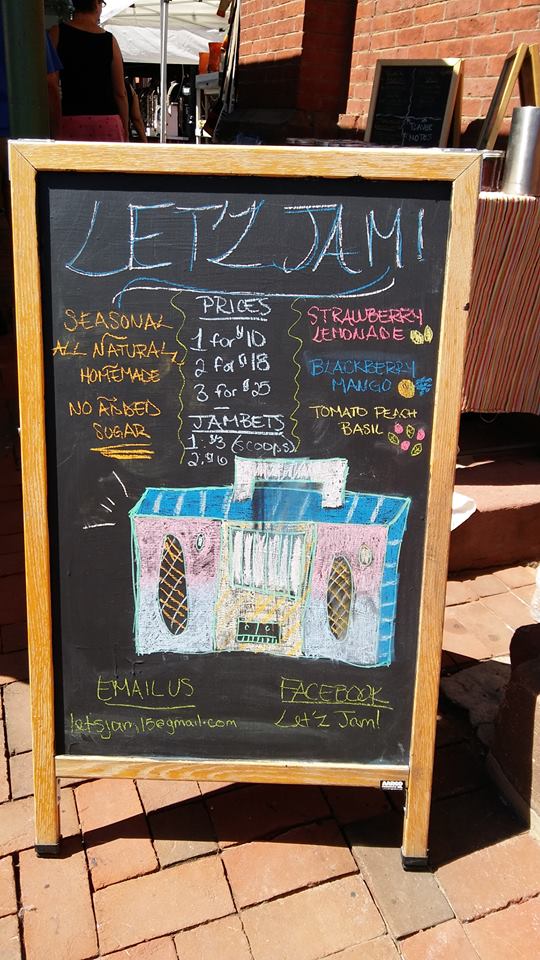 LET'Z JAM!
SEASONAL
ALL NATURAL
HOMEMADE
NO ADDED
SUGAR
PRICES
1 for $10
2 for $18
3 for $25
JAMBETS
1: $3 (scoops)
STRAWBERRY
LEMONADE
BLACKBERRY
MANGO
TOMATO PEACH
BASIL
EMAIL US
letsjam15@gmail.com
FACEBOOK
Let'z Jam!